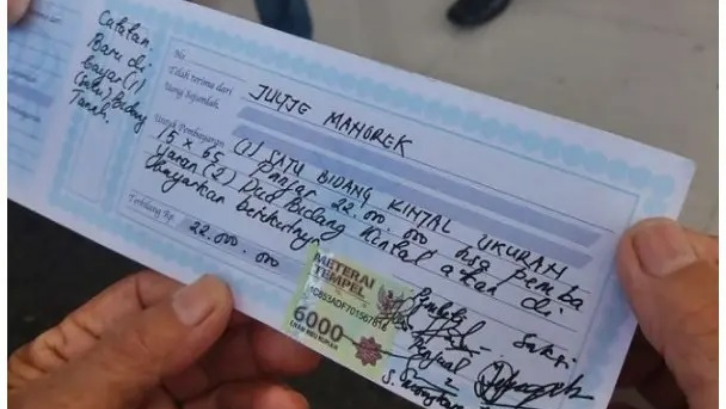 Catatan.
Baru di
bayar (1)
(satu) Bidang
Tanah.
No.
Telah terima dari JULTJE MANOREK
Uang Sejumlah
Untuk Pembayaran (1) SATU BIDANG KINTAL UKURAN
15 x 65 Panjar 22.000.000 sisa pemba
yaran (2) Dua Bidang Kintal akan di
bayarkan berikutnya
Terbilang Rp. 22.000.000
METERAI
TEMPEL
6000
ENAM RIBU RUPIAH
Pembeli Saksi
Penjual